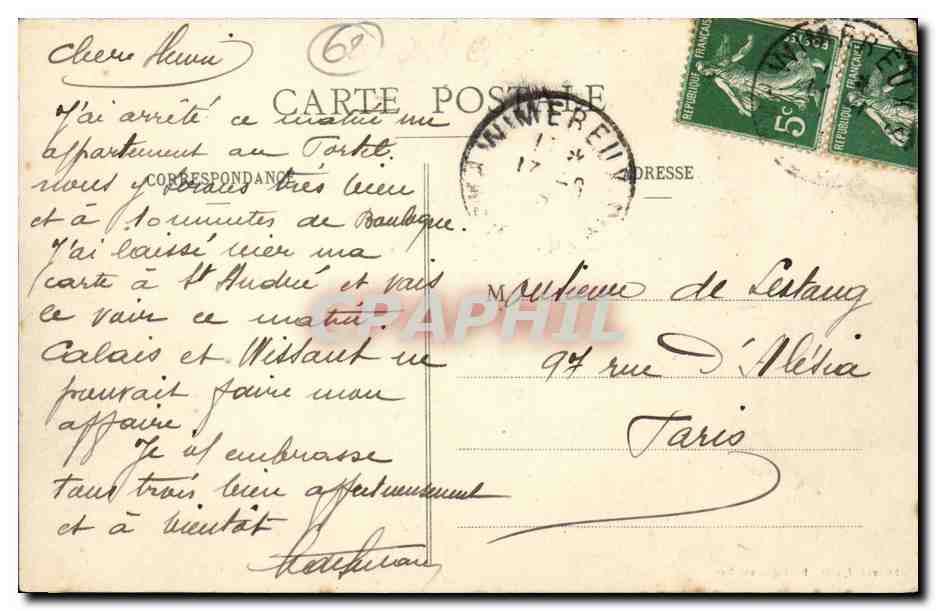 Chere Henri
62
CARTE POSTALE
J'ai arrêté ce matin un
appartement au Portel.
CORRESPONDANCE
nous y serons très bien
et à 10 minutes de Boulogne.
J'ai laissé hier ma
carte à St André et vais
le voir ce matin.
Calais et Wissant ne
pouvait faire mon
affaire
Je v/ embrasse
tous trois bien affectueusement
et à bientôt
WIMEREUX
17
ADRESSE
RÉPUBLIQUE FRANÇAISE
POSTES
5c
WIMEREUX
RÉPUBLIQUE
Monsieur de Lestang
97 rue d'Alésia
Paris
CPAPHIL